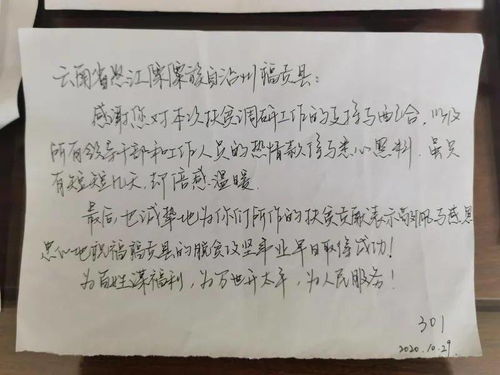 云南省怒江傈僳族自治州福贡县：
感谢您对本次扶贫调研工作的支持与配合，以及
所有领导干部和工作人员的热情款待与悉心照料，虽只
有短短几天，却倍感温暖。
最后，也诚挚地为你们所作的扶贫贡献表示高度与感恩
忠心地祝福福贡县的脱贫攻坚事业早日取得成功！
为百姓谋福利，为万世开太平，为人民服务！
301
2020.10.29.